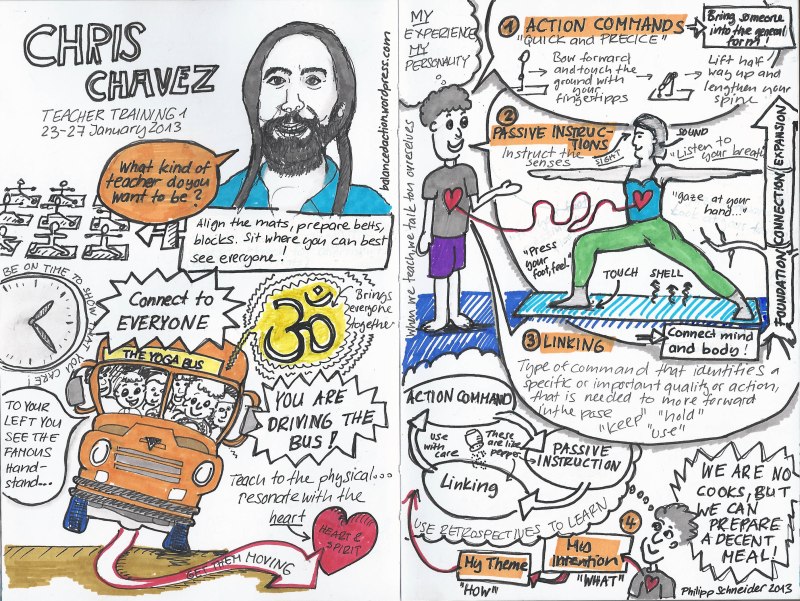 CHRIS
CHAVEZ
TEACHER TRAINING 1
23-27 January 2013
balancedaction.wordpress.com
What kind of
teacher do you
want to be?
Align the mats, prepare belts,
blocks. Sit where you can best
see everyone!
BE ON TIME TO SHOW THAT YOU CARE!
Connect to
EVERYONE
ॐ
Brings
everyone
together
THE YOGA BUS
YOU ARE
DRIVING THE
BUS!
TO YOUR
LEFT YOU
SEE THE
FAMOUS
Hand-
stand...
Teach to the physical...
resonate with the
heart
HEART &
SPIRIT
GET THEM MOVING
MY
EXPERIENCE
MY
PERSONALITY
When we teach, we talk to ourselves
1 ACTION COMMANDS
"QUICK and PRECICE"
Bring someone
into the general
form!
Bow forward
and touch the
ground with
your
fingertipps
Lift half
way up and
lengthen your
spine
2
PASSIVE INSTRUC-
TIONS
Instruct the
senses
SIGHT
SOUND
"Listen to
your breath"
"gaze at your
hand..."
"Press
your
foot, feel"
TOUCH
SMELL
FOUNDATION CONNECTION EXPANSION
3 LINKING
Connect mind
and body!
Type of command that identifies a
specific or important quality or action,
that is needed to move forward
in the pose
"Keep" "hold"
"use"
ACTION COMMAND
use
with
care
These
are like
pepper
PASSIVE
INSTRUCTION
Linking
USE RETROSPECTIVES TO LEARN
4
My
Intention
"WHAT"
My Theme
"HOW"
WE ARE NO
COOKS, BUT
WE CAN
PREPARE
A DECENT
MEAL!
Philipp Schneider 2013